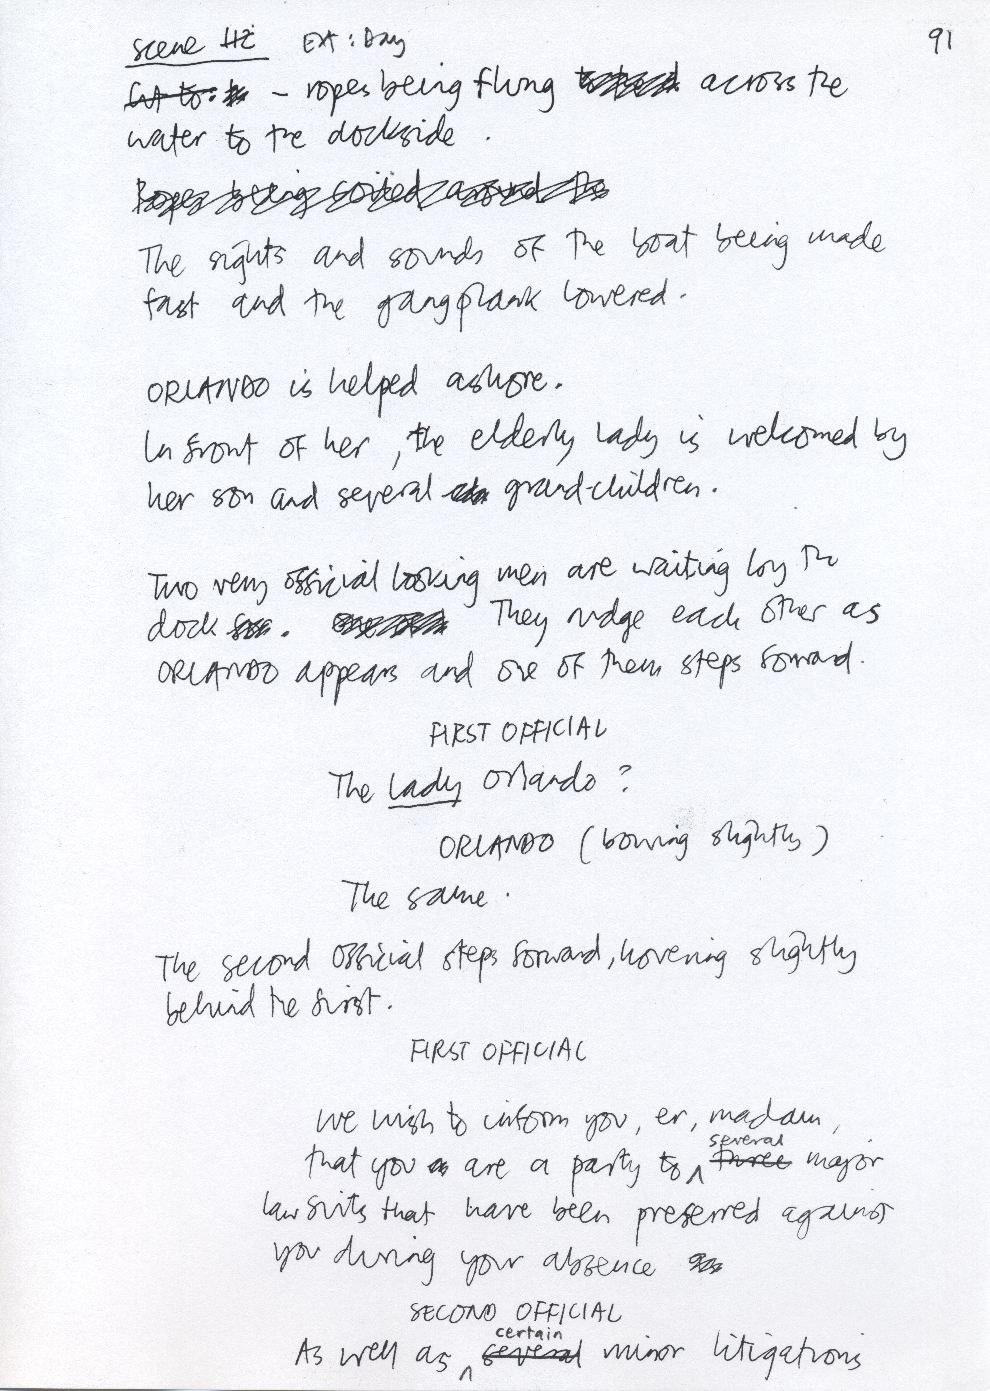 91
Scene 42 EXT: Day
Cut to: - ropes being flung across the
water to the dockside.
Ropes being coiled around the
The sights and sounds of the boat being made
fast and the gangplank lowered.
ORLANDO is helped ashore.
In front of her, the elderly lady is welcomed by
her son and several grand-children.
Two very official looking men are waiting by the
dock. They nudge each other as
ORLANDO appears and one of them steps forward.
FIRST OFFICIAL
The lady Orlando?
ORLANDO (bowing slightly)
The same.
The second official steps forward, hovering slightly
behind the first.
FIRST OFFICIAL
We wish to inform you, er, madam,
several
that you are a party to three major
lawsuits that have been preferred against
you during your absence
SECOND OFFICIAL
certain
As well as several minor litigations